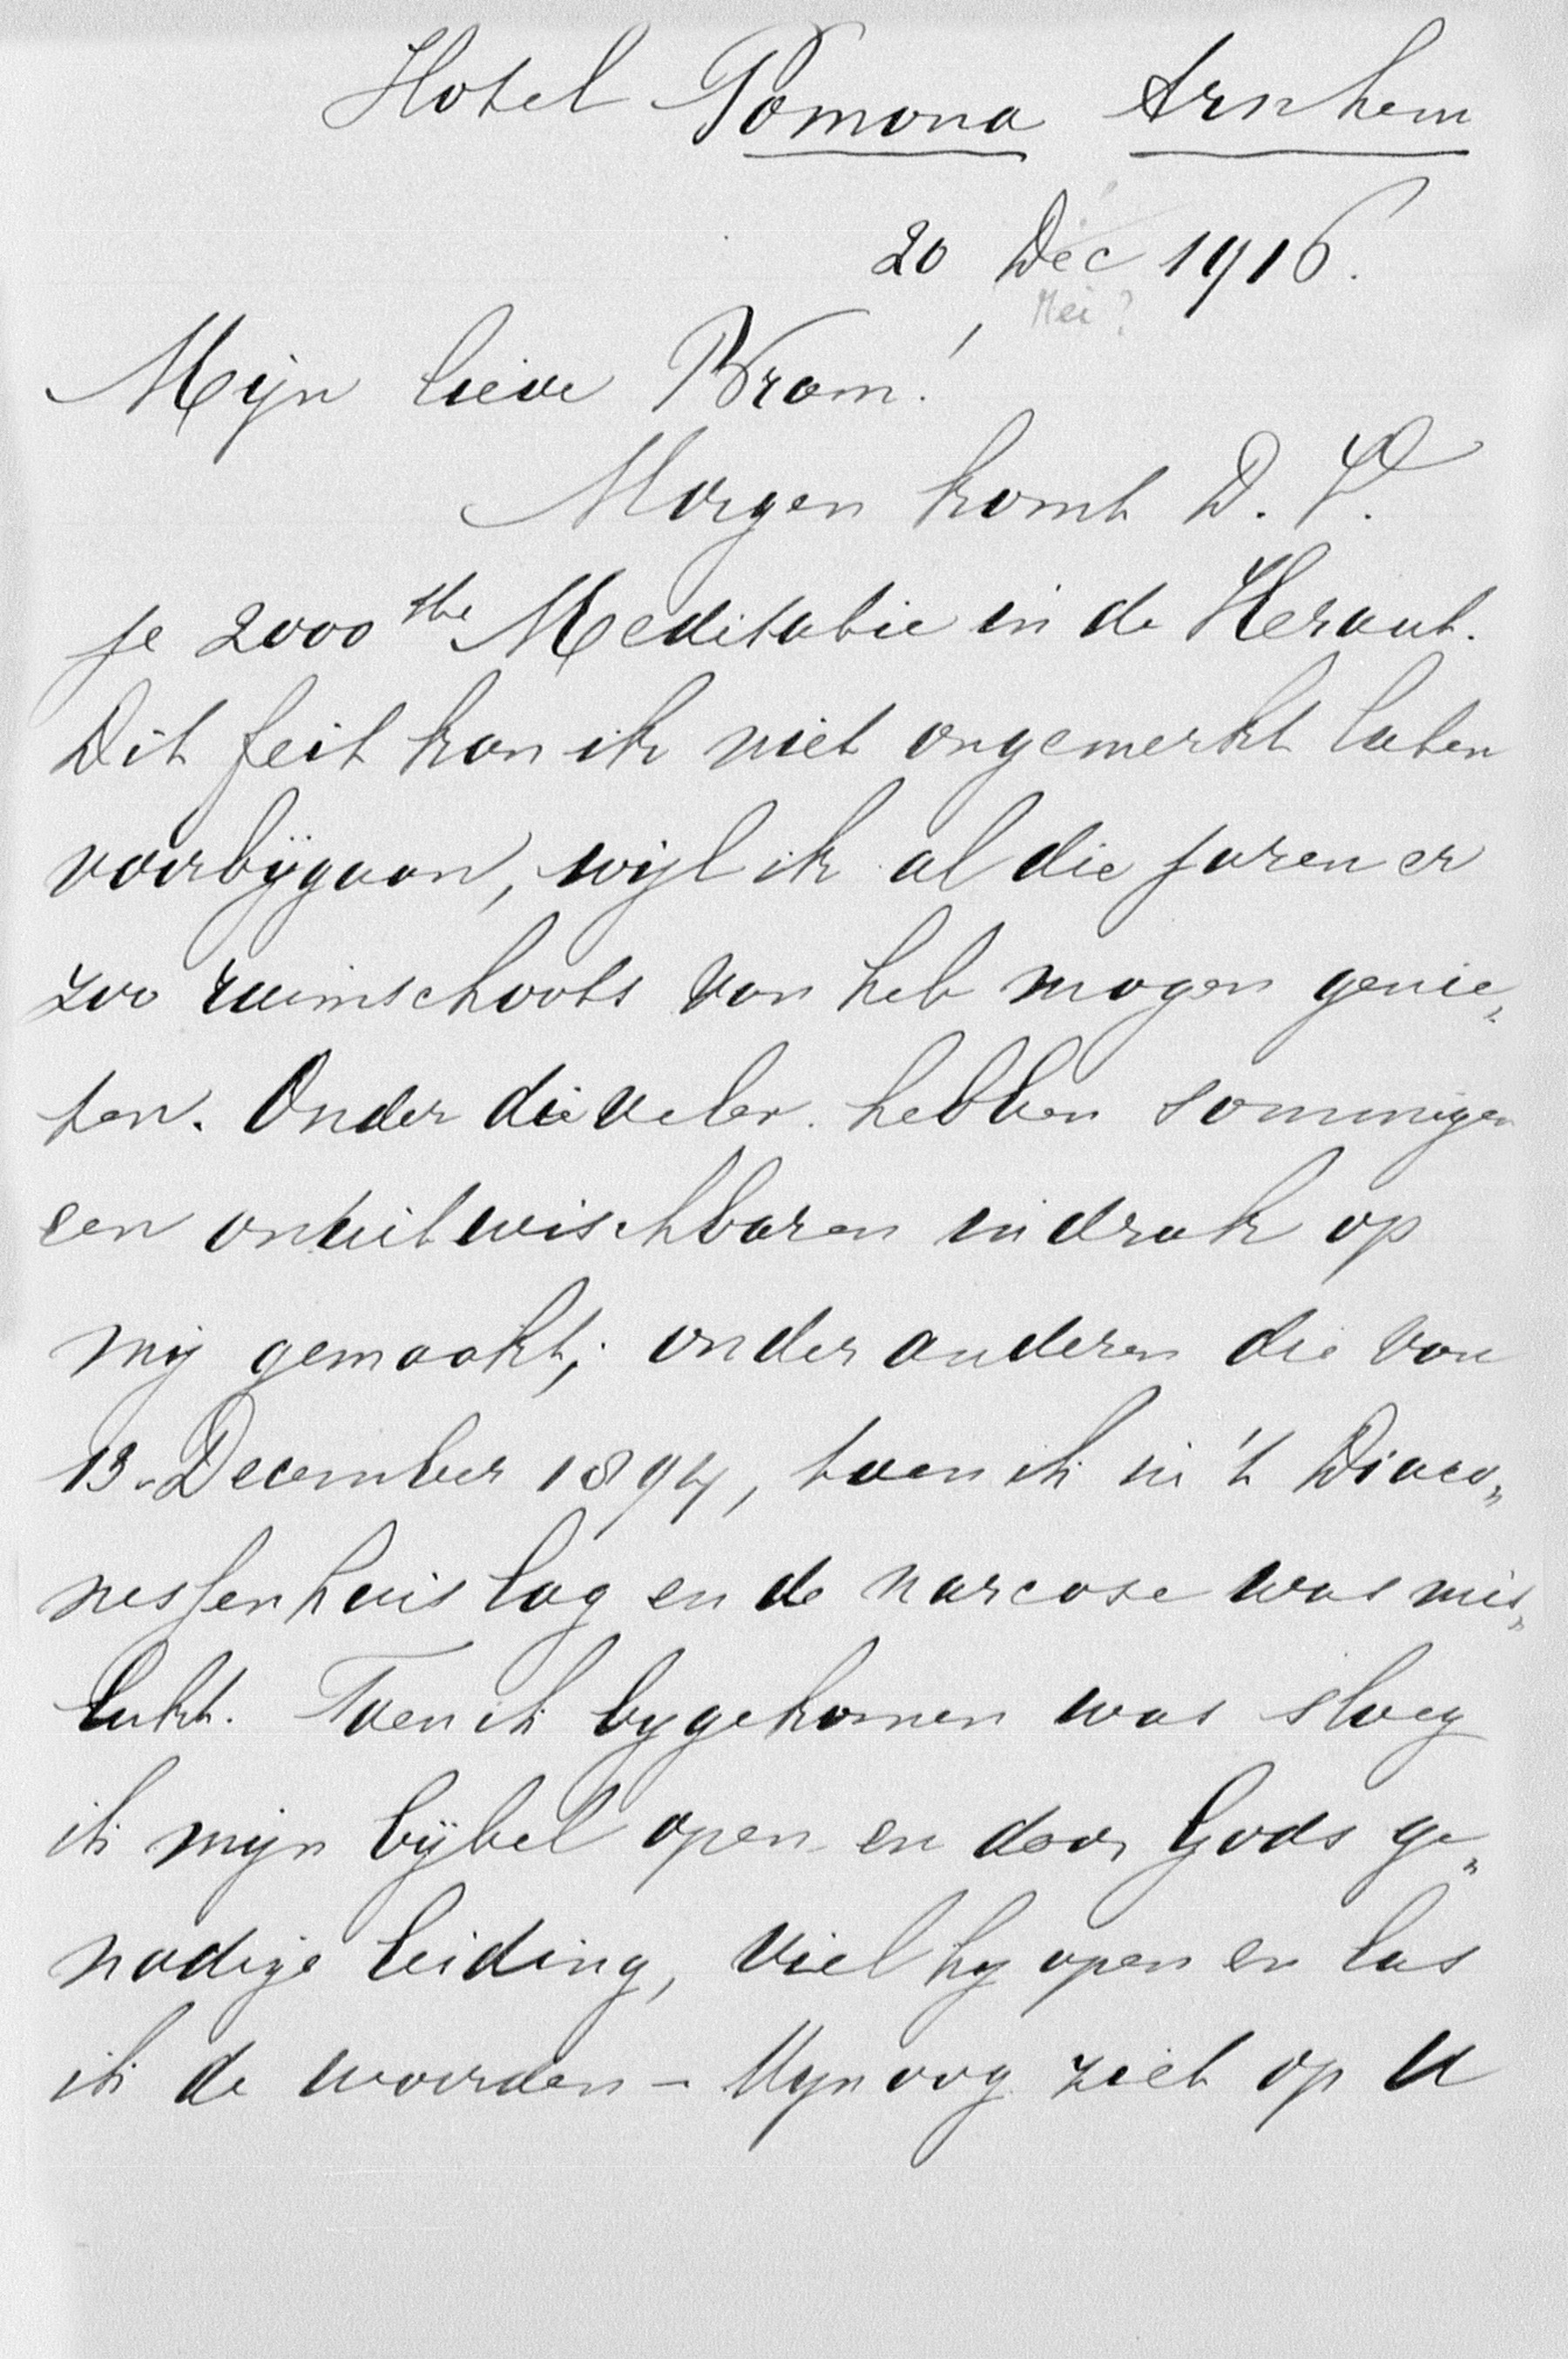 Hotel Pomona Arnhem
20 Dec 1916.
Mei?
Mijn lieve Bram!
Morgen komt D. V.
je 2000ste Meditatie in de Heraut.
Dit feit kan ik niet ongemerkt laten
voorbijgaan, wijl ik al die jaren er
zoo ruimschoots van heb mogen genie„
ten. Onder die velen hebben sommigen
een onuitwischbaren indruk op
mij gemaakt; onder anderen die van
13 December 1894, toen ik in 't Diaco„
nessenhuis lag en de narcose was mis„
lukt. Toen ik bygekomen was sloeg
ik mijn bijbel open en door Gods ge„
nadige leiding, viel hy open en las
ik de woorden – Mijn oog ziet op U